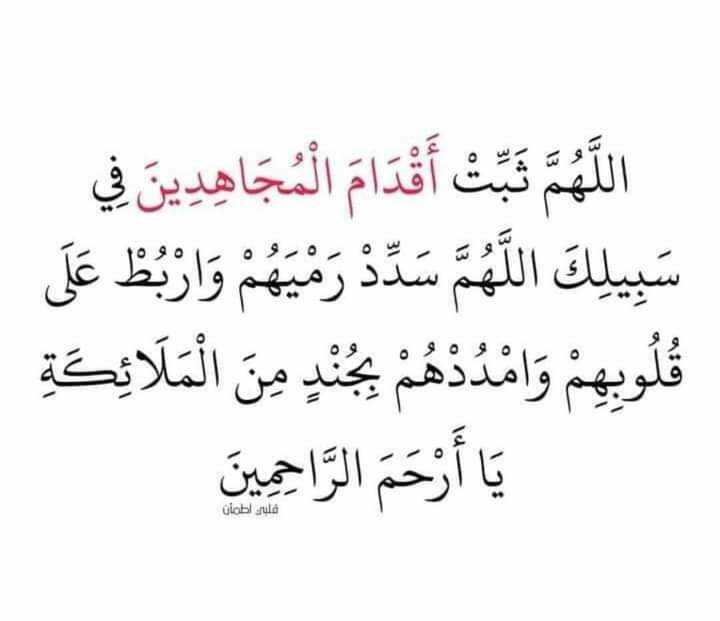 اللَّهُمَّ ثَبِّتْ أَقْدَامَ الْمُجَاهِدِينَ فِي
سَبِيلِكَ اللَّهُمَّ سَدِّدْ رَمْيَهُمْ وَارْبُطْ عَلَى
قُلُوبِهِمْ وَامْدُدْهُمْ بِجُنْدٍ مِنَ الْمَلَائِكَةِ
يَا أَرْحَمَ الرَّاحِمِينَ
قلبي اطمأن